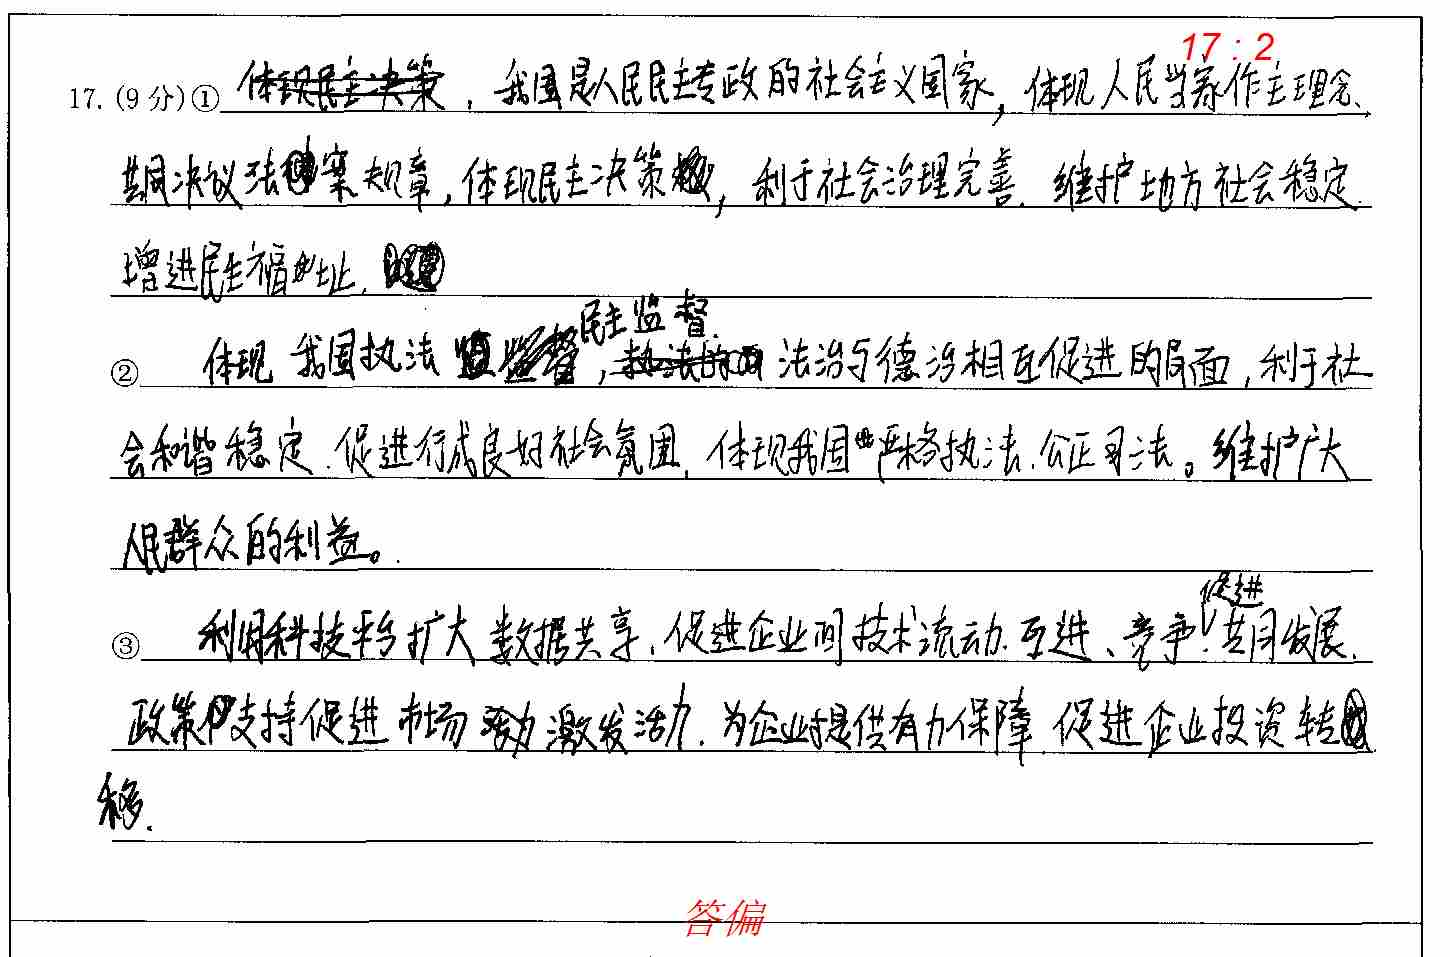 17 : 2
17. (9 分) ① 体现民主决策, 我国是人民民主专政的社会主义国家, 体现人民当家作主理念、
共同决议法案规章, 体现民主决策, 利于社会治理完善. 维护地方社会稳定.
增进民生福址.
民主监督.
② 体现 我国执法, 执法的 法治与德治相互促进的局面, 利于社
会和谐稳定. 促进行成良好社会氛围, 体现我国严格执法. 公正司法。维护广大
人民群众的利益。
促进
③ 利用科技平台扩大数据共享. 促进企业间技术流动. 互进、竞争. 共同发展.
政策支持促进市场 激发活力. 为企业提供有力保障. 促进企业投资转
移.
答偏